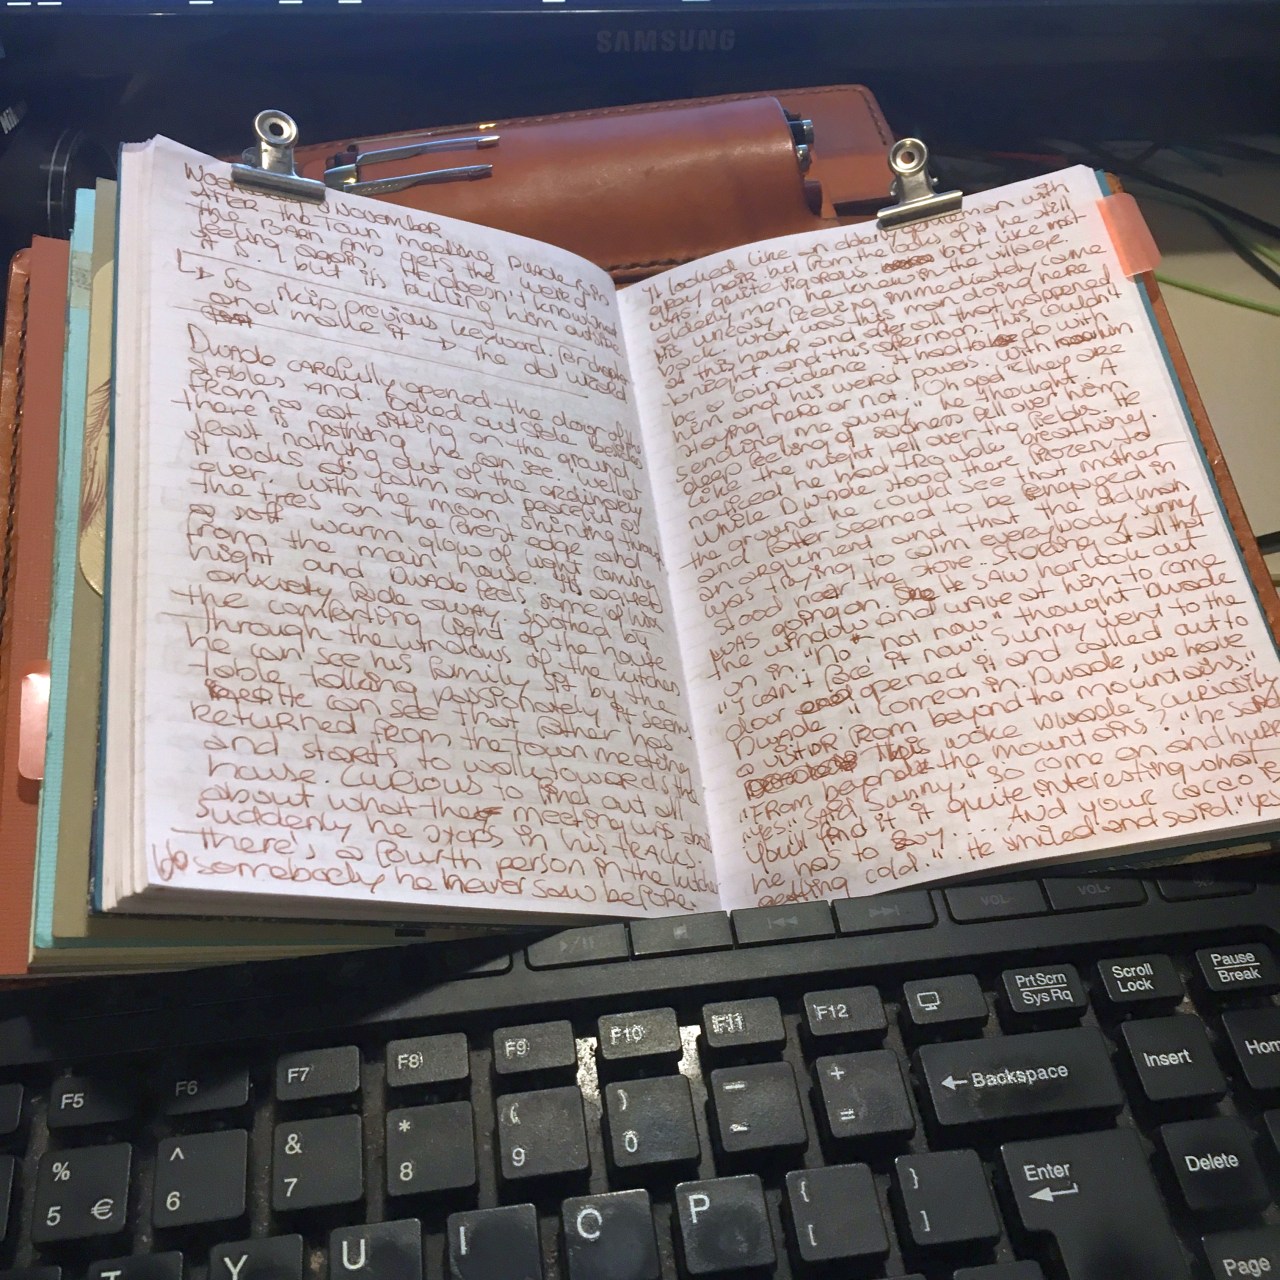 SAMSUNG
November
AFTER the town meeting Dwade is in
the BARN AND gets the weird
feeling again. HE doesn't know what
it is, but it's pulling him outside
So skip previous keyword.
and make it → the old weird
Dwade carefully opened the door of the
stables and looked outside. Besides
from a cat sitting on the ground
there is nothing he can see. Well at
least nothing out of the ordinary.
It looks as calm and peaceful as
ever. With the moon shining through
the trees on the forest edge and
a soft warm glow of light coming
from the main house. It's a quiet
night and Dwade feels some of his
anxiety fade away. Soothed by
the comforting light of the house
Through the windows of the kitchen
he can see his family sit by the
table talking passionately it seems
He can see that father has
returned from the town meeting
and starts to walk towards the
house. Curious to find out all
about what the meeting was about
Suddenly he stops in his tracks.
There's a fourth person in the kitchen
somebody he never saw before.
It looked like an elderly gentleman with
gray hair but from the looks of it he still
was quite vigorous not like most
elderly men he knew in the village.
His uneasy feeling immediately came
back. What was this man doing here
at this hour and after all that happened
tonight and this afternoon. This couldn't
be a coincidence. It had to do with
him and his weird powers. With him
staying here or not. "Oh god they are
sending me away" he thought. A
deep feeling of sadness fell over him
like the night fell over the fields. He
noticed he had trouble breathing.
While Dwade stood there frozen to
the ground he could see that mother
and father seemed to be engaged in
an argument and that the old man
was trying to calm everybody. Sunny
stood near the stove. Staring at all that
was going on. He saw her look out
the window and wave at him to come
on in. "No not now" thought Dwade
"I can't face it now" Sunny went to the
door opened it and called out to
Dwade "Come on in Dwade, we have
a visitor from beyond the mountains."
This woke Dwade's curiosity
"From beyond the mountains?" he said
"Yes" said Sunny, "so come on and hurry
You'll find it quite interesting what
he has to say.... And your cacao is
getting cold." He smiled and said "yes
VOL-
VOL+
F5
F6
F7
F8
F9
F10
F11
F12
PrtScrn
SysRq
Scroll
Lock
Pause
Break
%
5 €
^
6
&
7
*
8
(
9
)
0
+
=
← Backspace
Insert
Hom
Y
U
I
O
P
{
[
}
]
Enter
Delete
Page